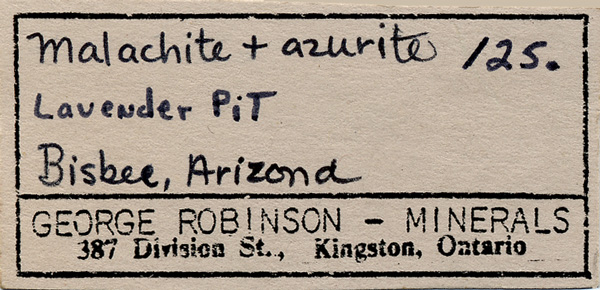 Malachite + azurite 125.
Lavender PiT
Bisbee, Arizona
GEORGE ROBINSON - MINERALS
387 Division St., Kingston, Ontario